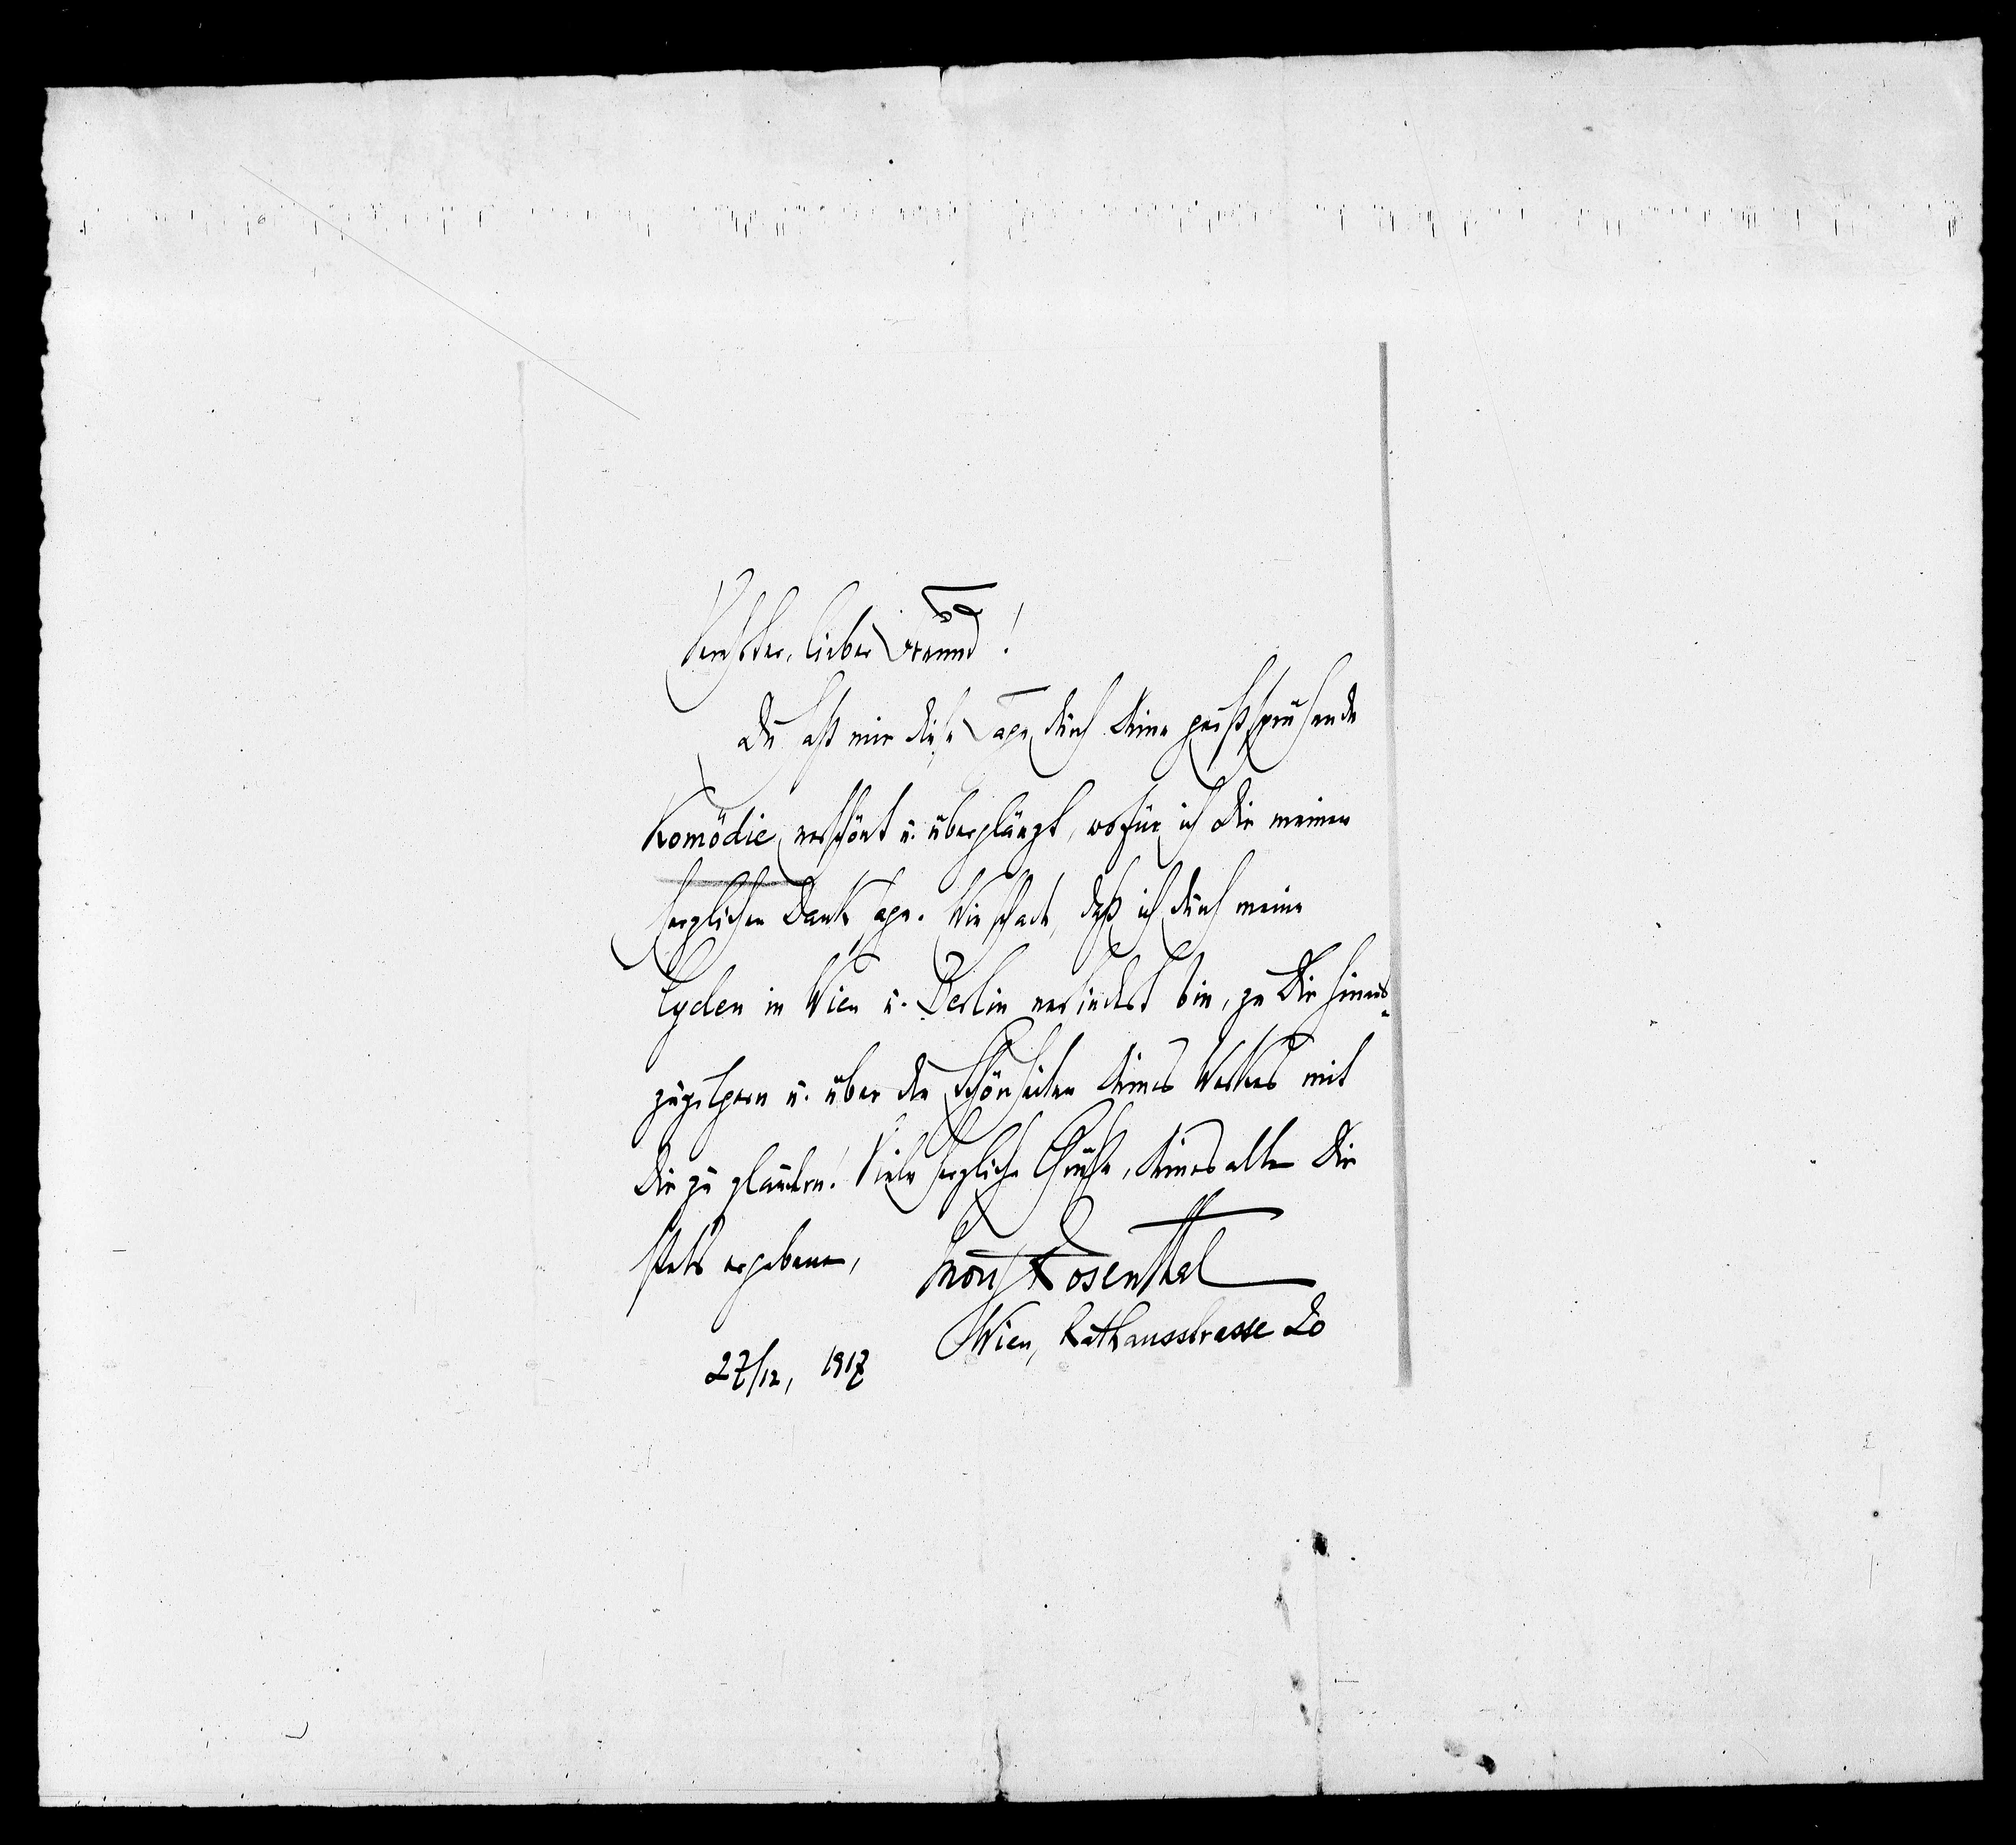 Verehrter, lieber Freund!
Du hast mir diese Tage durch Deine geistsprühende
Komödie verschönt u. überglänzt, wofür ich Dir meinen
herzlichen Dank sage. Wie schade, daß ich durch meine
Cyclen in Wien u. Berlin verhindert bin, zu Dir hinaus-
zu u. über die Schönheiten Deines Werkes mit
Dir zu plaudern! Viele herzliche Grüße, Deines alten Dir
stets ergebenen,
Moriz Rosenthal
Wien, Rathausstrasse 20
27/12, 1917